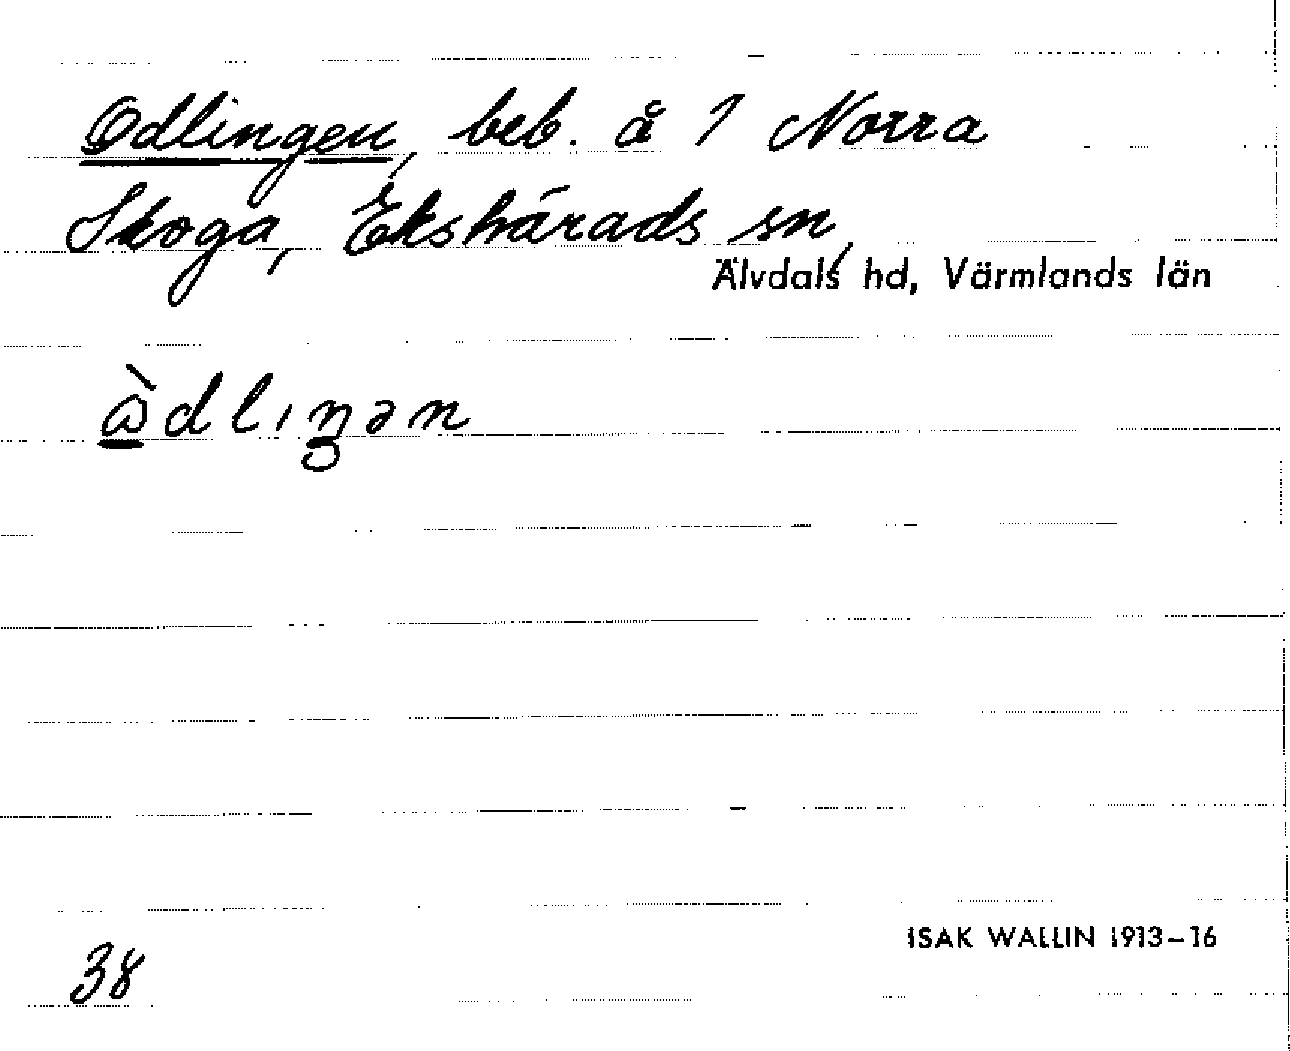 Odlingen, beb. å 1 Norra
Skoga, Ekshärads sn,
Älvdals hd, Värmlands län
ὼdlıŋən
ISAK WALLIN 1913–16
38